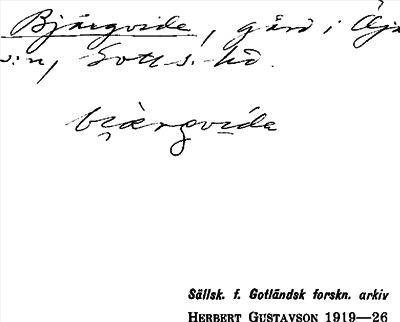 Bjärgvide, gård i Öja
s:n, Gotl. s. hd.
biàrgvída
Sällsk. f. Gotländsk forskn. arkiv
HERBERT GUSTAVSON 1919—26